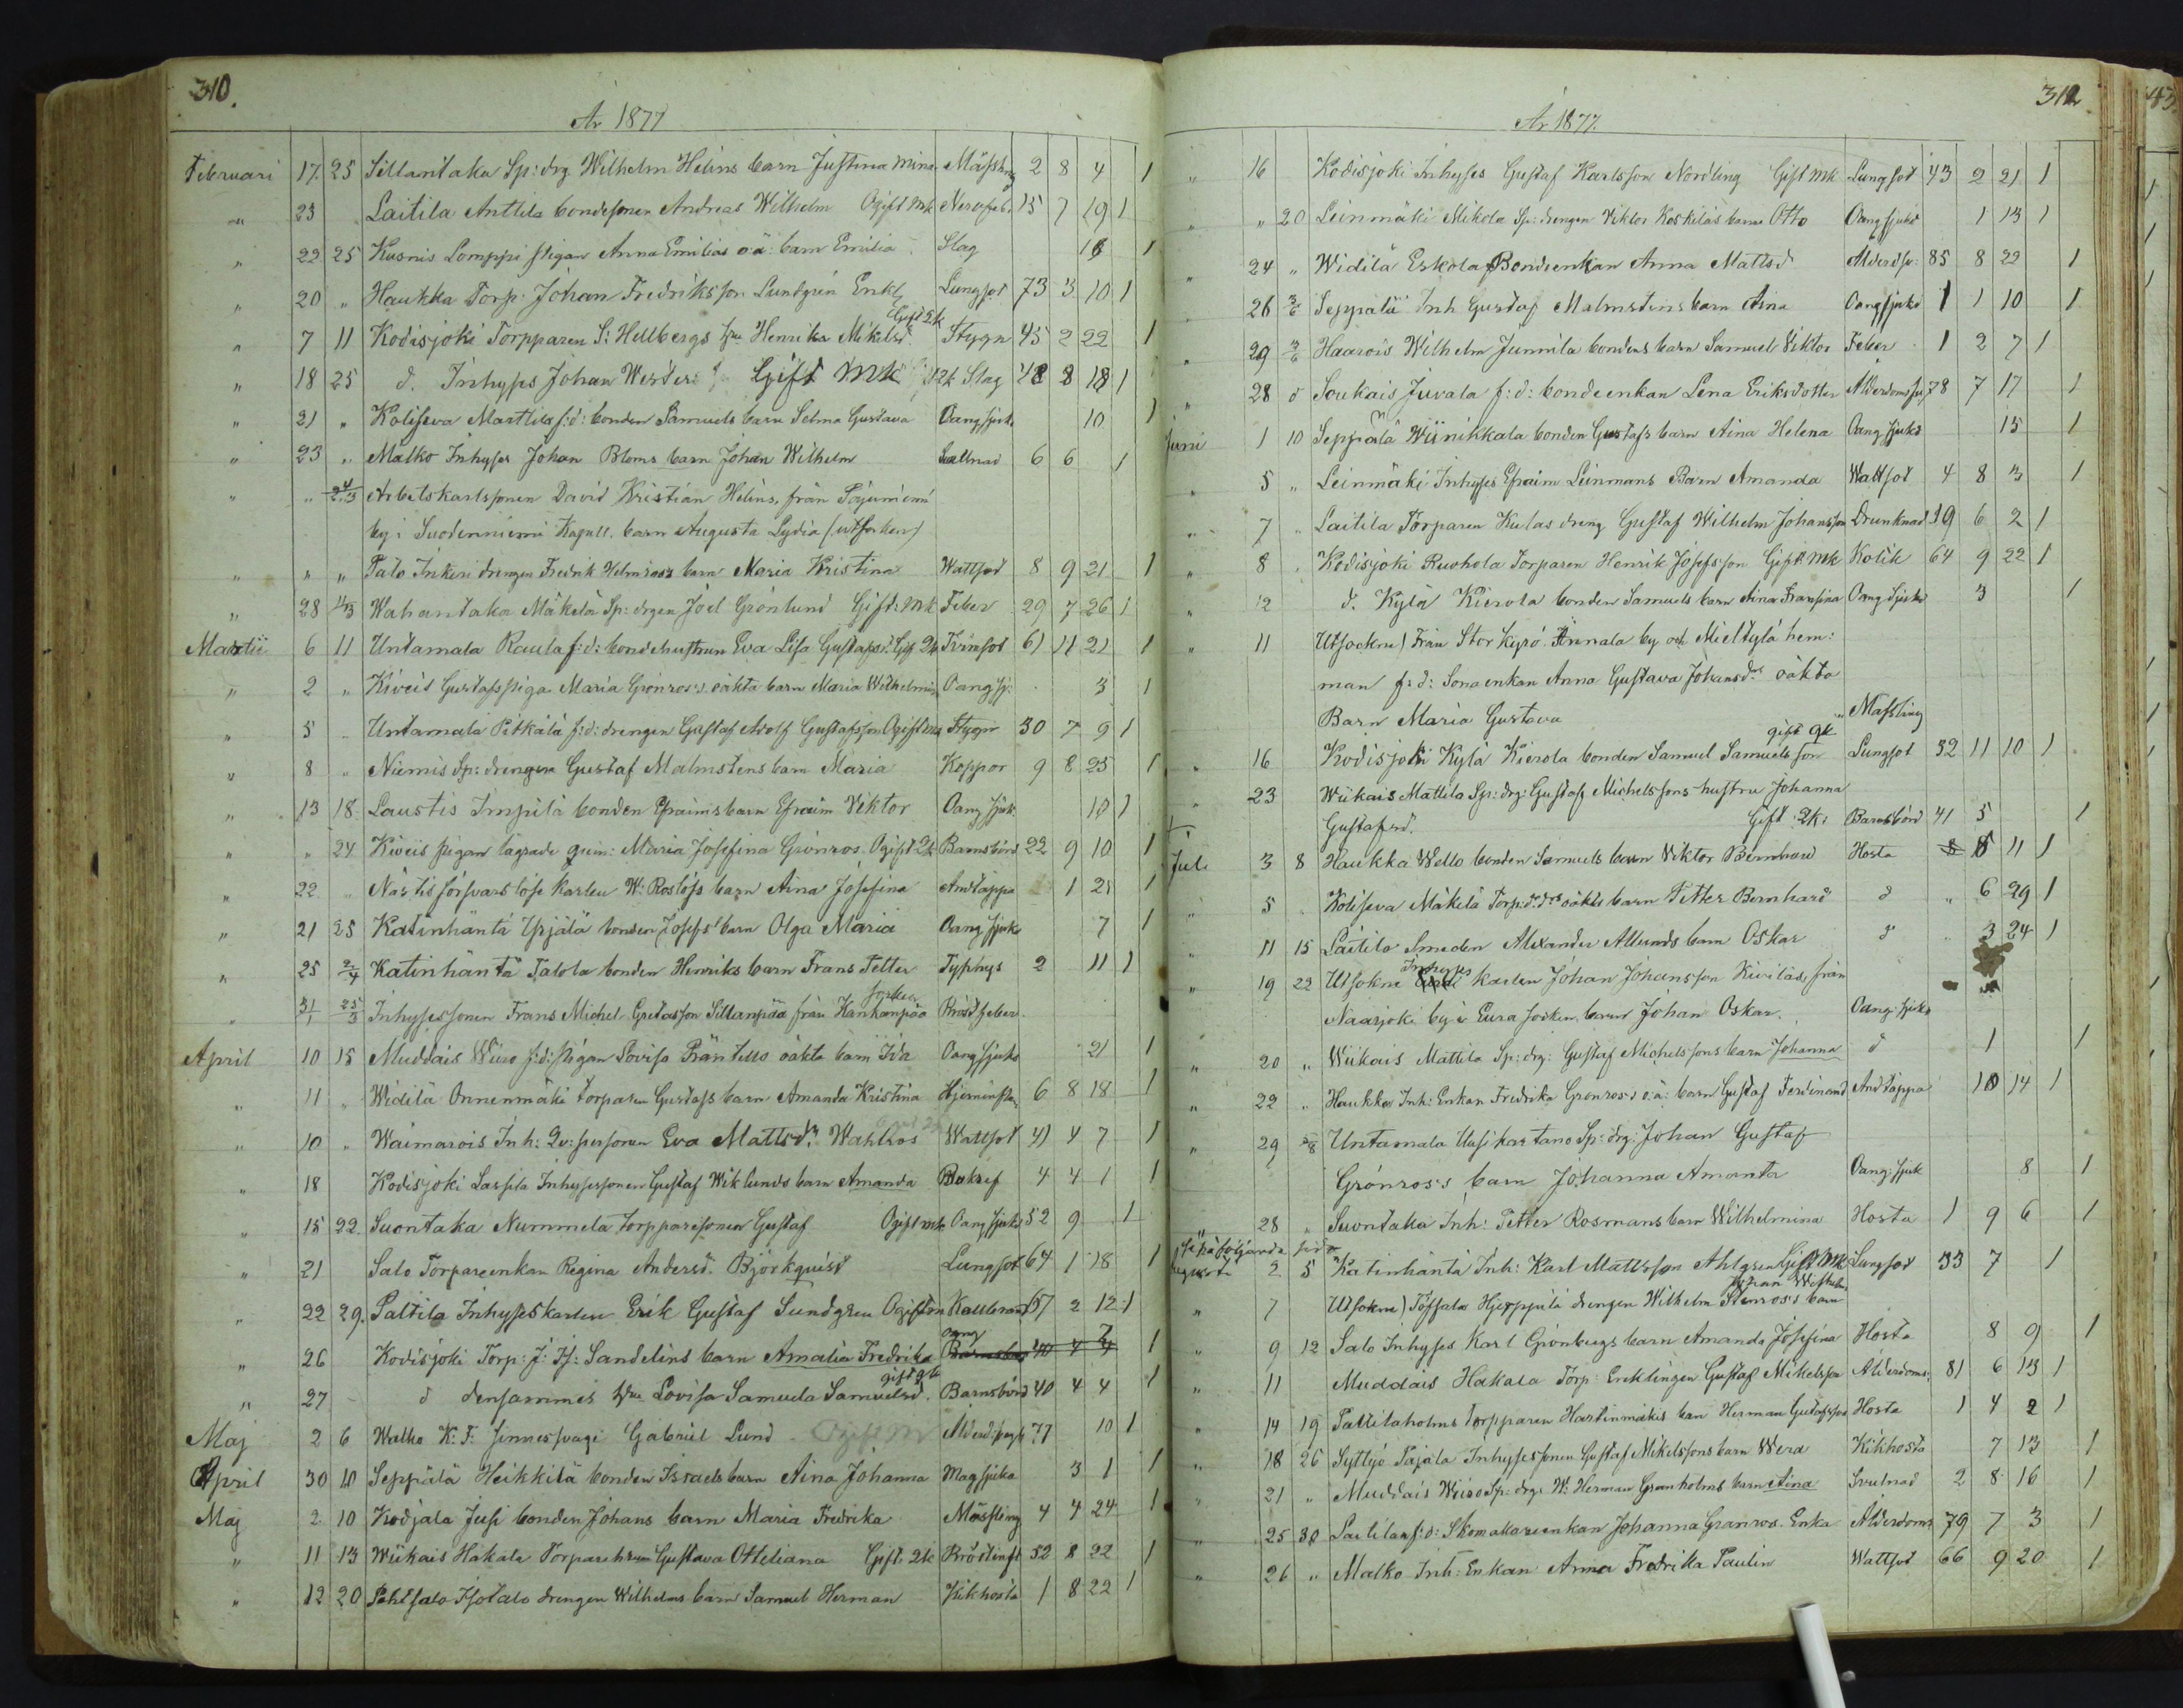 310.
År 1877
Februari 17. 25 Sillantaka Sp: drg Wilhelm Helins barn Justina Mina Mässling 2 8 4 1
" 23 Laitila Anttila bondesonen Andreas Wilhelm Ogift Mk Nervfeb. 15 7 19 1
" 22 25 Kusnis Lomppi pigan Anna Emilias o:ä: barn Emilia Slag 16 1
" 20 " Haukka Torp: Johan Fredriksson Lundgrén Enkl Lungsot 73 3 10 1
" 7 11 Kodisjoki Torpparen S: Hellbergs Hu Henrika Mikelsd. Gift 2k Stygn 45 2 22 1
" 18 25 d. Inhyses Johan Wester Gift Mk Slag 48 8 18 1
" 21 " Koliseva Marttila f:d: bonden Samuels barn Selma Gustava Oang sjuk 10 1
" 23 " Malko Inhyses Johan Bloms barn Johan Wilhelm 6 6 1
" " 24/3 Arbetskarlssonen David Kristian Helins, från
by i Suodenniemi Kapell. barn Augusta Lydia (utsocken)
" " " Palo Inkeri drengen Fredrik Helmross barn Maria Kristina Wattsot 8 9 21 1
" 28 11/3 Wahantaka Mäkelä Sp: drgen Joel Grönlund Gift: Mk Feber 29 7 26 1
Martii 6 11 Untamala Raula f:d: bondehustrun Eva Lisa Gustafsd. Gif 2k Tvinsot 61 11 21 1
" 2 " Kiveis Gustafs piga Maria Grönros's oäkta barn Maria Wilhelmin Oang sj. 3 1
" 5 Untamala Pitkälä f:d: drengen Gustaf Adolf Gustafsson Ogift Mk Stygn 30 7 9 1
" 8 " Niemis Sp: drengen Gustaf Malmstens barn Maria Koppor 9 8 25 1
" 13 18 Laustis Impilä bonden Efraims barn Efraim Viktor Oang sjuk 10 1
" " 24 Kiveis pigan lägrade quin: Maria Josefina Grönros. Ogift 2k Barnsbörd 22 9 10 1
" 22 Nästis försvarslöse karlen W: Roslöfs barn Aina Josefina Andtäppa 1 21 1
" 21 25 Katinhäntä Yrjälä bonden Josefs barn Olga Maria Oang sjuk 7 1
" 25 2/4 Katinhäntä Talola bonden Henriks barn Frans Petter Typhus 2 11 1
" 31/1 25/3 Inhysessonen Frans Michel Gustafsson Sillanpää från Kankanpää socken Bröstfeber
April 10 15 Muddais Wiiro f:d: pigan Lovisa Präntells oäkta barn Ida Oang sjuk 21 1
" 11 " Widilä Onnenmäki torparen Gustafs barn Amanda Kristina 6 8 18 1
" 10 " Waimarois Inh: Qv: personen Eva Mattsdr Wahlros Wattsot 41 4 7 1
" 18 Kodisjoki Lassila Inhysessonen Gustaf Wiklunds barn Amanda 4 4 1 1
" 15 22. Suontaka Nummela torpparesonen Gustaf Ogift mk Oang sjuk 52 9 1
" 21 Salo Torpareenkan Regina Andersd. Björkquist Lungsot 64 1 18 1
" 22 29. Paltila Inhyseskarlen Erik Gustaf Sundgren Ogift m Kallbrand 67 2 12 1
" 26 Kodisjoki Torp: J: Fs: Sandelins barn Amalia Fredrika Barnsbörd oang 40 4 4 7 1
" 27 d densammes Hu Lovisa Samuela Samuelsd. gift qk Barnsbörd 40 4 4 1
Maj 2 6 Walko K: F: finnesfvagi Gabriel Lund Ogift M 77 10 1
April 30 10 Seppälä Heikkilä bonden Israels barn Aina Johanna Magsjuka 3 1 1
Maj 2 10 Kodjala Jusi bonden Johans barn Maria Fredrika Mässling 4 4 24 1
" 11 13 Wiikais Hakala Torpare hrun Gustava Otteliana Gift: 2k Bröstinfl 52 8 22 1
" 12 20 Pehtsalo Isotalo drengen Wilhelms barn Samuel Herman Kikhosta 1 8 22 1
312
År 1877.
" 16 Kodisjoki Inhyses Gustaf Karlsson Nordling Gift Mk Lungsot 43 2 21 1
" " 20 Leinmäki Mikola Sp: drengen Viktor Koskeläs barn Otto Oang sjukd 1 13 1
" 24 " Widilä Eskola Bondeenkan Anna Mattsd Ålderdsp: 85 8 22 1
" 26 3/6 Seppälä Inh Gustaf Malmstens barn Aina Oang sjukd 1 1 10 1
" 29 3/6 Haarois Wilhelm Junnila bondens barn Samuel Viktor Feber 1 2 7 1
" 28 d Soukais Juvala f:d: bondeenkan Lena Eriksdotter Ålderdoms 78 7 17 1
Juni 1 10 Seppälä Wiinikkala bonden Gustafs barn Aina Helena Oang Sjukd 15 1
" 5 " Leinmäki Inhyses Efraim Leinmans Barn Amanda Wattsot 4 8 3 1
" 7 " Laitila Torparen Kulas dreng Gustaf Wilhelm Johansson Drunknad 19 6 2 1
" 8 Kodisjoki Ruohola Torparen Henrik Josefsson Gift Mk Kolik 64 9 22 1
" 12 d. Kylä Kierola bonden Samuels barn Aina Fransina Oang Sjukd 3 1
" 11 Utsockne) Från Stor Kyrö Annala by och Mieltylä hem:
man f:d: Sonaenkan Anna Gustava Johansdr oäkta
Barn Maria Gustava Mässling
" 16 Kodisjoki Kylä Kierola bonden Samuel Samuelsson gift qk Lungsot 32 11 10 1
" 23 Wiikais Mattila Sp: drg: Gustaf Michelssons hustru Johanna
Gustafsd. Gift 2k: Barnsbörd 41 5 1
Juli 3 8 Haukka Wello bonden Samuels barn Viktor Bernhard Hosta 8 11 1
" 5 Koliseva Mäkelä Torp: drs oäkta barn Petter Bernhard d " 6 29 1
" 11 15 Laitila Smeden Alexander Allunds barn Oskar d " 3 24 1
" 19 22 Utsokne Inhyses karlen Johan Johansson Kiviläs, från
Naarjoki by i Eura socken, barn Johan Oskar. Oang: sjukd
" 20 " Wiikais Mattila Sp: drg: Gustaf Michelssons barn Johanna d 1 1
" 22 " Haukka Inh: Enkan Fredrika Grönros's o:ä: barn Gustaf Ferdinand Andtäppa 10 14 1
" 29 5/8 Untamala Uusikartano Sp: drg: Johan Gustaf
Grönros's barn Johanna Amanta Oang: sjuk 8 1
" 28 " Suontaka Inh: Petter Rosmans barn Wilhelmina Hosta 1 9 6 1
se påföljande sida
Augusti 2 5 Katinhäntä Inh: Karl Mattsson Ahlgren Gift Mk Lungsot 33 7 1
" 7 Utsokne) Töffsala Hjerppilä drengen Wilhelm Stenros's barn Johan Wilhelm
" 9 12 Salo Inhyses Karl Grönbergs barn Amanda Josefina Hosta 8 9 1
" 11 Muddais Hakala Torp: Enklingen Gustaf Mikelsson Ålderdoms: 81 6 13 1
" 14 19 Palttilaholms Torpparen Hartinmäkis barn Herman Gustafsson Hosta 1 4 2 1
" 18 26 Syttyö Pajala Inhysessonen Gustaf Mikelssons barn Wera Kikhosta 7 13 1
" 21 " Muddais Wiiro Sp: drg: W: Herman Granholms barn Aina Svulnad 2 8 16 1
" 25 30 Laitila f:d: Skomakareenkan Johanna Granros. Enka Ålderdoms 79 7 3 1
" 26 " Malko Inh: Enkan Anna Fredrika Paulin Wattsot 66 9 20 1